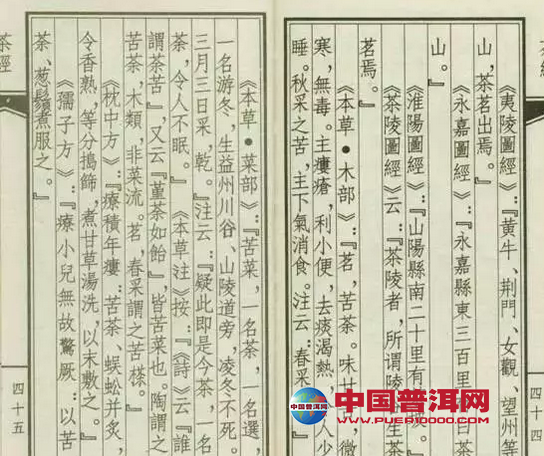 茶經
《夷陵圖經》:『黃牛、荆門、女觀、望州等
山,茶茗出焉。』
《永嘉圖經》:『永嘉縣東三百里
山。』
《淮陽圖經》:『山陽縣南二十里有
《茶陵圖經》云:『茶陵者,所謂陵 生茶
茗焉。』
《本草•木部》:『茗,苦茶。味甘 微
寒,無毒。主瘻瘡,利小便,去痰渴熱, 人少
睡。秋采之苦,主下氣消食。注云:春采
四十四
茶經
《本草•菜部》:『苦菜,一名茶,一名選,
一名游冬,生益州川谷、山陵道旁,凌冬不死。
三月三日采,乾。』注云:『疑此即是今茶,一名
茶,令人不眠。』《本草注》按:『《詩》云『誰
謂茶苦』,又云『堇茶如飴』,皆苦菜也。陶謂之
苦茶,木類,非菜流。茗,春采謂之苦㯉。』
《枕中方》:『療積年瘻:苦茶、蜈蚣并炙,
令香熟,等分搗篩,煮甘草湯洗,以末敷之。』
《孺子方》:『療小兒無故驚厥:以苦
茶、葱鬚煮服之。』
四十五
中国普洱网
WWW.PUER10000.COM